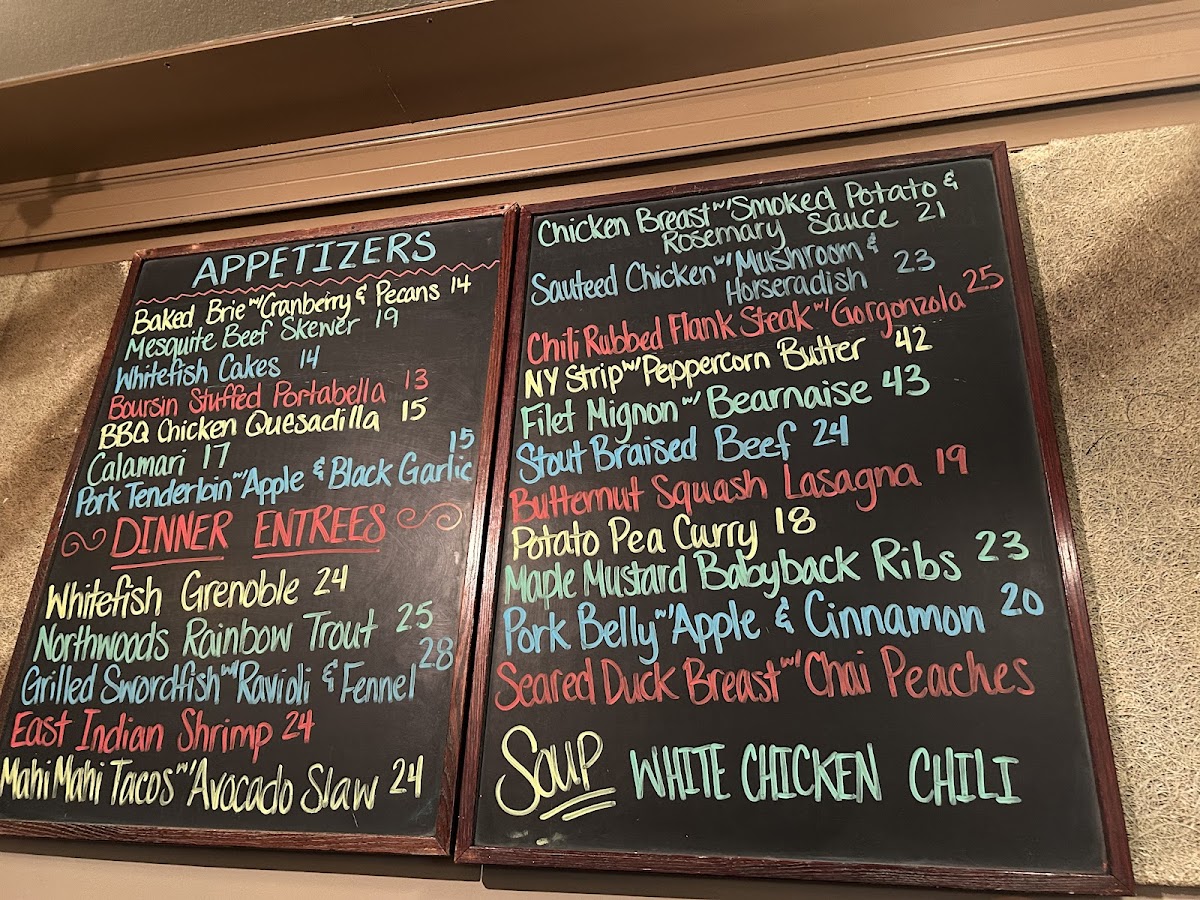 APPETIZERS
Baked Brie w/ Cranberry & Pecans 14
Mesquite Beef Skewer 19
Whitefish Cakes 14
Boursin Stuffed Portabella 13
BBQ Chicken Quesadilla 15
Calamari 17
Pork Tenderloin w/ Apple & Black Garlic 15
DINNER ENTREES
Whitefish Grenoble 24
Northwoods Rainbow Trout 25
Grilled Swordfish w/ Ravioli & Fennel 28
East Indian Shrimp 24
Mahi Mahi Tacos w/ Avocado Slaw 24
Chicken Breast w/ Smoked Potato &
Rosemary Sauce 21
Sauteed Chicken w/ Mushroom &
Horseradish 23
Chili Rubbed Flank Steak w/ Gorgonzola 25
NY Strip w/ Peppercorn Butter 42
Filet Mignon w/ Bearnaise 43
Stout Braised Beef 24
Butternut Squash Lasagna 19
Potato Pea Curry 18
Maple Mustard Babyback Ribs 23
Pork Belly w/ Apple & Cinnamon 20
Seared Duck Breast w/ Chai Peaches
Soup WHITE CHICKEN CHILI